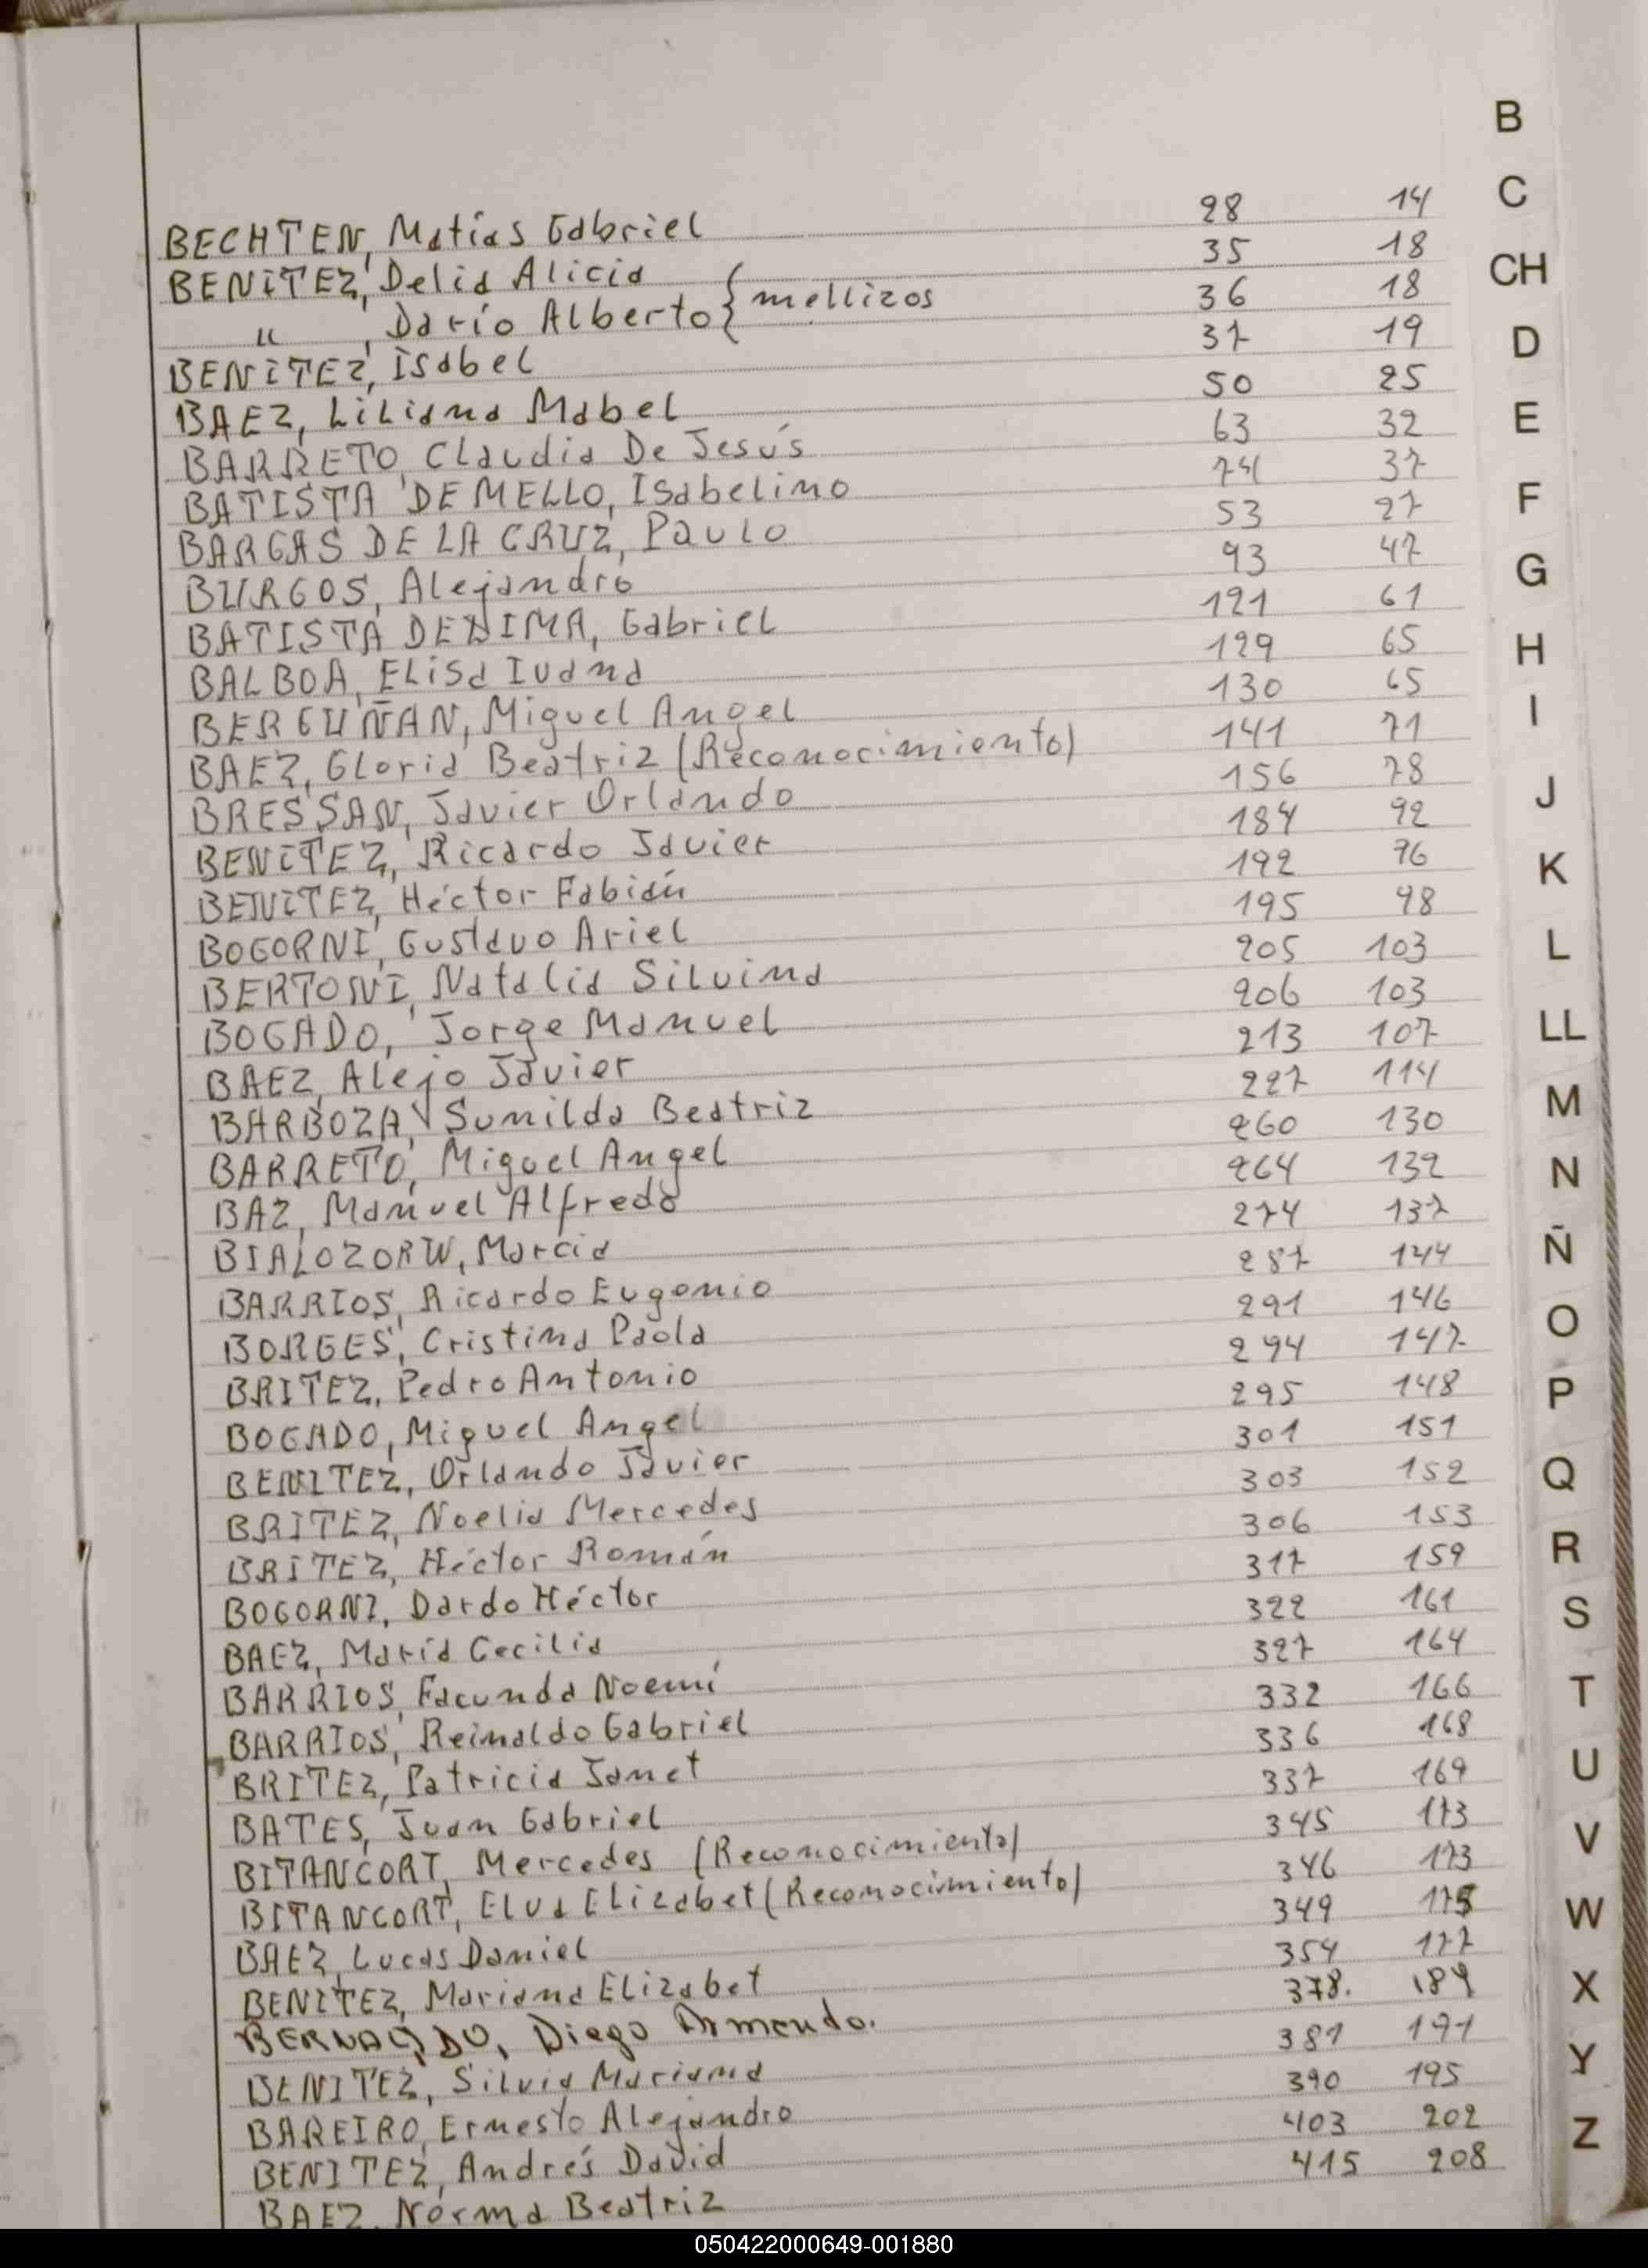 B
C
CH
D
E
F
G
H
I
J
K
L
LL
M
N
Ñ
O
P
Q
R
S
T
U
V
W
X
Y
Z
BECHTEN, Matías Gabriel 28 14
BENITEZ, Delia Alicia 35 18
" , Darío Alberto } mellizos 36 18
BENITEZ, Isabel 37 19
BAEZ, Liliana Mabel 50 25
BARRETO, Claudia De Jesús 63 32
BATISTA DE MELLO, Isabelino 74 37
BARGAS DE LA CRUZ, Paulo 53 27
BURGOS, Alejandro 93 47
BATISTA DE LIMA, Gabriel 121 61
BALBOA, Elisa Ivana 129 65
BERGUÑAN, Miguel Angel 130 65
BAEZ, Gloria Beatriz (Reconocimiento) 141 71
BRESSAN, Javier Orlando 156 78
BENITEZ, Ricardo Javier 184 92
BENITEZ, Héctor Fabián 192 96
BOGORNI, Gustavo Ariel 195 98
BERTONI, Natalia Silvina 205 103
BOGADO, Jorge Manuel 206 103
BAEZ, Alejo Javier 213 107
BARBOZA, Sunilda Beatriz 227 114
BARRETO, Miguel Angel 260 130
BAZ, Manuel Alfredo 264 132
BIALOZORW, Marcia 274 137
BARRIOS, Ricardo Eugenio 287 144
BORGES, Cristina Paola 291 146
BRITEZ, Pedro Antonio 294 147
BOGADO, Miguel Angel 295 148
BENITEZ, Orlando Javier 301 151
BRITEZ, Noelia Mercedes 303 152
BRITEZ, Héctor Román 306 153
BOGORNI, Dardo Héctor 317 159
BAEZ, María Cecilia 322 161
BARRIOS, Facunda Noemí 327 164
BARRIOS, Reinaldo Gabriel 332 166
BRITEZ, Patricia Janet 336 168
BATES, Juan Gabriel 337 169
BITANCORT, Mercedes (Reconocimiento) 345 173
BITANCORT, Elva Elizabet (Reconocimiento) 346 173
BAEZ, Lucas Daniel 349 175
BENITEZ, Mariana Elizabet 354 177
BERNARDO, Diego Armando. 378. 189
BENITEZ, Silvia Mariana 381 191
BAREIRO, Ernesto Alejandro 390 195
BENITEZ, Andrés David 403 202
BAEZ, Norma Beatriz 415 208
050422000649-001880